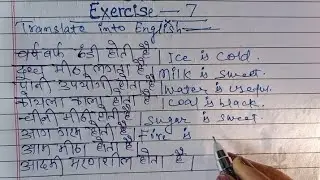 Exercise - 7
Translate into English -
वर्फ ठंडी होती है। Ice is cold.
दूध मीठा लगता है। Milk is sweet.
पानी उपयोगी होता है। Water is useful.
कोयला काला होता है। Coal is black.
चीनी मीठी होती है। Sugar is sweet.
आग गरम होती है। Fire is
आम मीठा होता है।
आदमी मरणशील होता है।